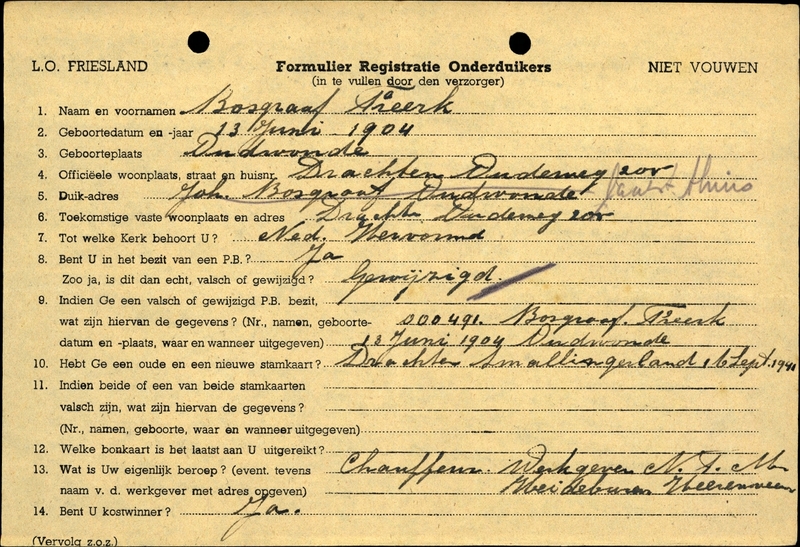 L.O. FRIESLAND Formulier Registratie Onderduikers NIET VOUWEN
(in te vullen door den verzorger)
1. Naam en voornamen Bosgraaf Freerk
2. Geboortedatum en -jaar 13 Juni 1904
3. Geboorteplaats Oudwoude
4. Officiëele woonplaats, straat en huisnr. Drachten Oudeweg 20v
5. Duik-adres Joh. Bosgraaf Oudwoude
6. Toekomstige vaste woonplaats en adres Drachten Oudeweg 20v
7. Tot welke Kerk behoort U? Ned. Hervormd
8. Bent U in het bezit van een P.B.? Ja
Zoo ja, is dit dan echt, valsch of gewijzigd? Gewijzigd.
9. Indien Ge een valsch of gewijzigd P.B. bezit,
wat zijn hiervan de gegevens? (Nr., namen, geboorte- 000491. Bosgraaf. Freerk
datum en -plaats, waar en wanneer uitgegeven) 13 Juni 1904 Oudwoude
10. Hebt Ge een oude en een nieuwe stamkaart? Drachten Smallingerland 16 Sept. 1941
11. Indien beide of een van beide stamkaarten
valsch zijn, wat zijn hiervan de gegevens?
(Nr., namen, geboorte, waar en wanneer uitgegeven)
12. Welke bonkaart is het laatst aan U uitgereikt?
13. Wat is Uw eigenlijk beroep? (event. tevens Chauffeur. Werkgever N.T.M.
naam v. d. werkgever met adres opgeven) Heideburen Heerenveen
14. Bent U kostwinner? Ja.
(Vervolg z.o.z.)